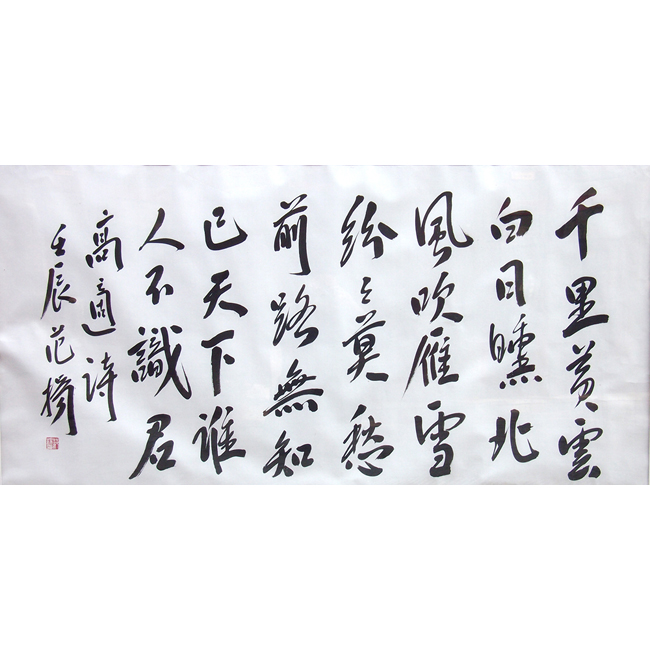 千里黄雲
白日曛北
風吹雁雪
紛々莫愁
前路無知
己天下誰
人不識君
高適詩
壬辰范